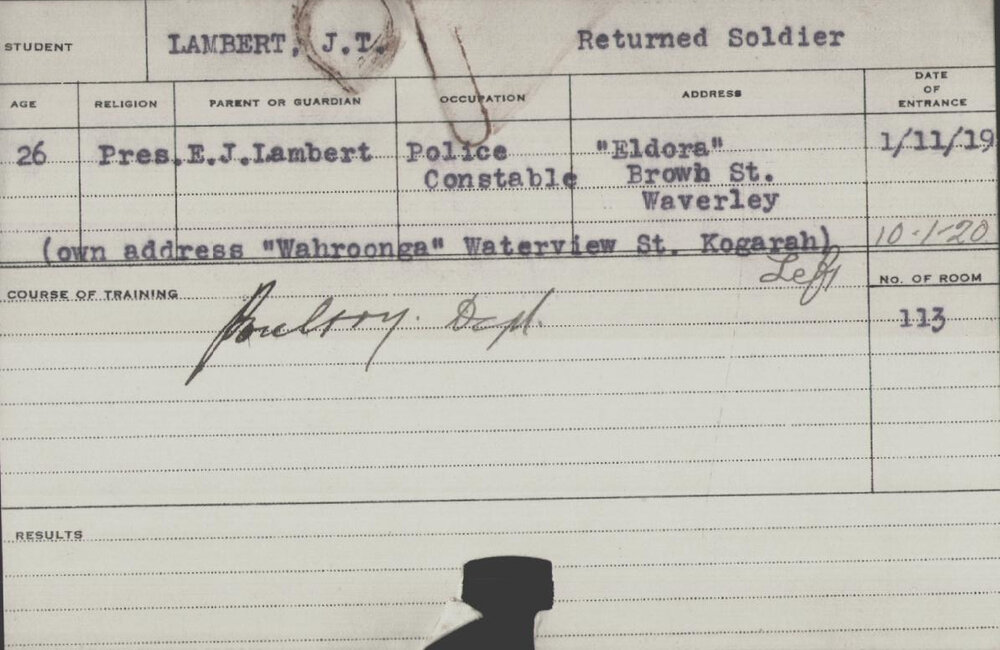 STUDENT LAMBERT, J.T. Returned Soldier
AGE RELIGION PARENT OR GUARDIAN OCCUPATION ADDRESS DATE OF ENTRANCE
26 Pres. E.J.Lambert Police "Eldora" 1/11/19
Constable Browh St.
Waverley
(own address "Wahroonga" Waterview St. Kogarah) 10-1-20
Left
COURSE OF TRAINING No. OF ROOM
Poultry. Dept. 113
RESULTS